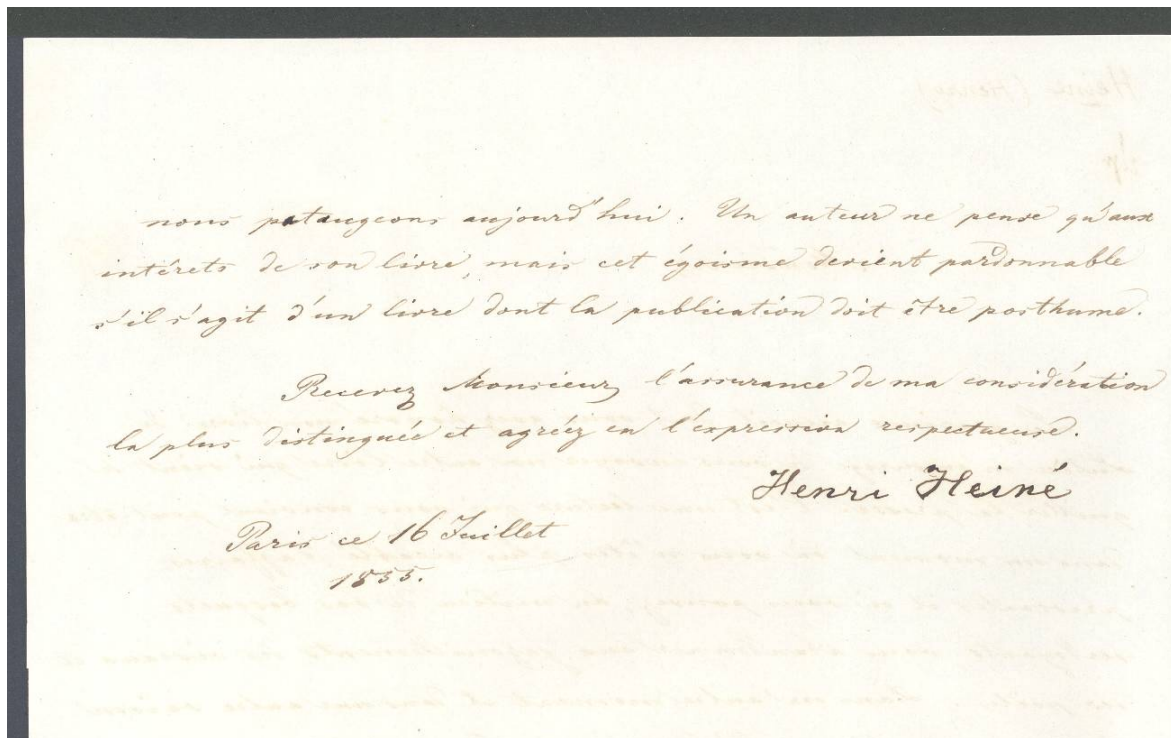 nous pataugeons aujourd'hui. Un auteur ne pense qu'aux
intérets de son livre, mais cet égoisme devient pardonnable
s'il s'agit d'un livre dont la publication doit être posthume.
Recevez Monsieur, l'assurance de ma considération
la plus distinguée et agréez en l'expression respectueuse.
Henri Heiné
Paris ce 16 Juillet
1855.